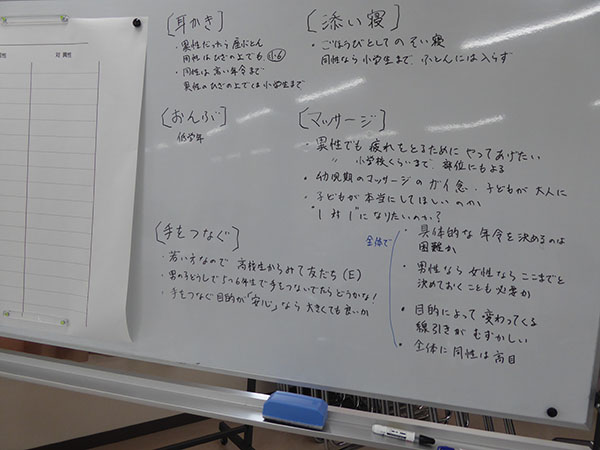 [耳かき]
・異性だったら座ぶとん
同性はひざの上でも 小・6
・同性は高い年令まで
異性のひざの上では小学生まで
[おんぶ]
低学年
[手をつなぐ]
・若い方なので 高校生からみて友だち(E)
・男の子どうしで5〜6年生で手をつないでたらどうかな!
・手をつなぐ目的が「安心」なら大きくても良いか
[添い寝]
・ごほうびとしてのそい寝
同性なら小学生まで、ふとんには入らず
[マッサージ]
・異性でも疲れをとるためにやってあげたい
〃 小学校くらいまで、部位にもよる
・幼児期のマッサージのガイ念、子どもが大人に
・子どもが本当にしてほしいのか
"1対1"になりたいのか?
全体で
・具体的な年令を決めるのは
困難か
・男性なら女性ならここまでと
決めておくことも必要か
・目的によって変わってくる
線引きがむずかしい
・全体に同性は高目
対 異性